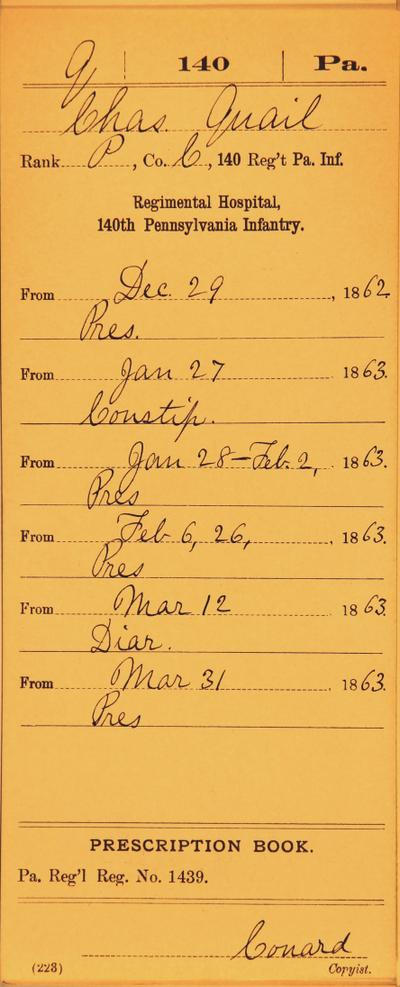 Q | 140 | Pa.
Chas. Quail
Rank P, Co. C, 140 Reg't Pa. Inf.
Regimental Hospital,
140th Pennsylvania Infantry.
From Dec. 29, 1862
Pres.
From Jan 27 1863.
Constip.
From Jan 28-Feb. 2, 1863.
Pres
From Feb 6, 26, , 1863.
Pres
From Mar 12 1863
Diar.
From Mar 31 . 1863.
Pres
PRESCRIPTION BOOK.
Pa. Reg'l Reg. No. 1439.
Conard
(223) Copyist.